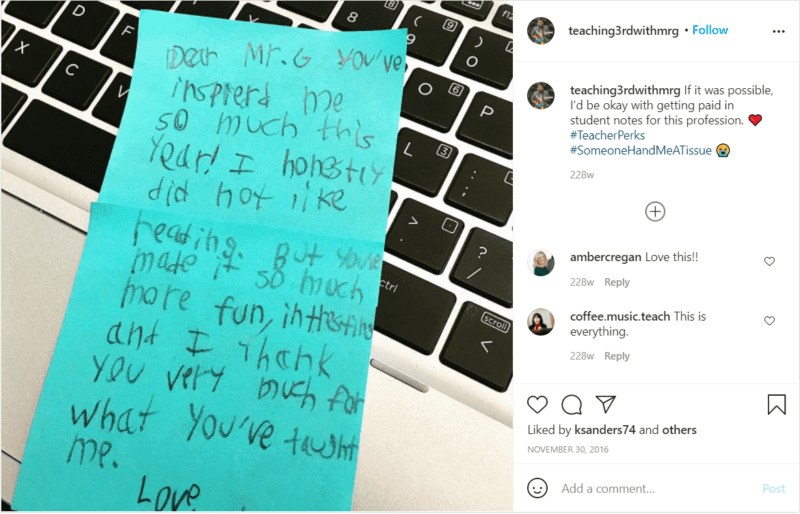 Dear Mr. G You've
inspierd me
so much this
Year! I honestly
did not like
reading. But you've
made it so much
more fun, inttresting
and I thank
you very much for
what you've taught
me.
Love
teaching3rdwithmrg • Follow
teaching3rdwithmrg If it was possible,
I'd be okay with getting paid in
student notes for this profession. ❤️
#TeacherPerks
#SomeoneHandMeATissue 😭
228w
ambercregan Love this!!
228w Reply
coffee.music.teach This is
everything.
228w Reply
Liked by ksanders74 and others
NOVEMBER 30, 2016
Add a comment...
Post
D
F
X
C
V
8
9
9
O
O
6
P
L
3
;
:
>
.
?
/
ctrl
scroll
<